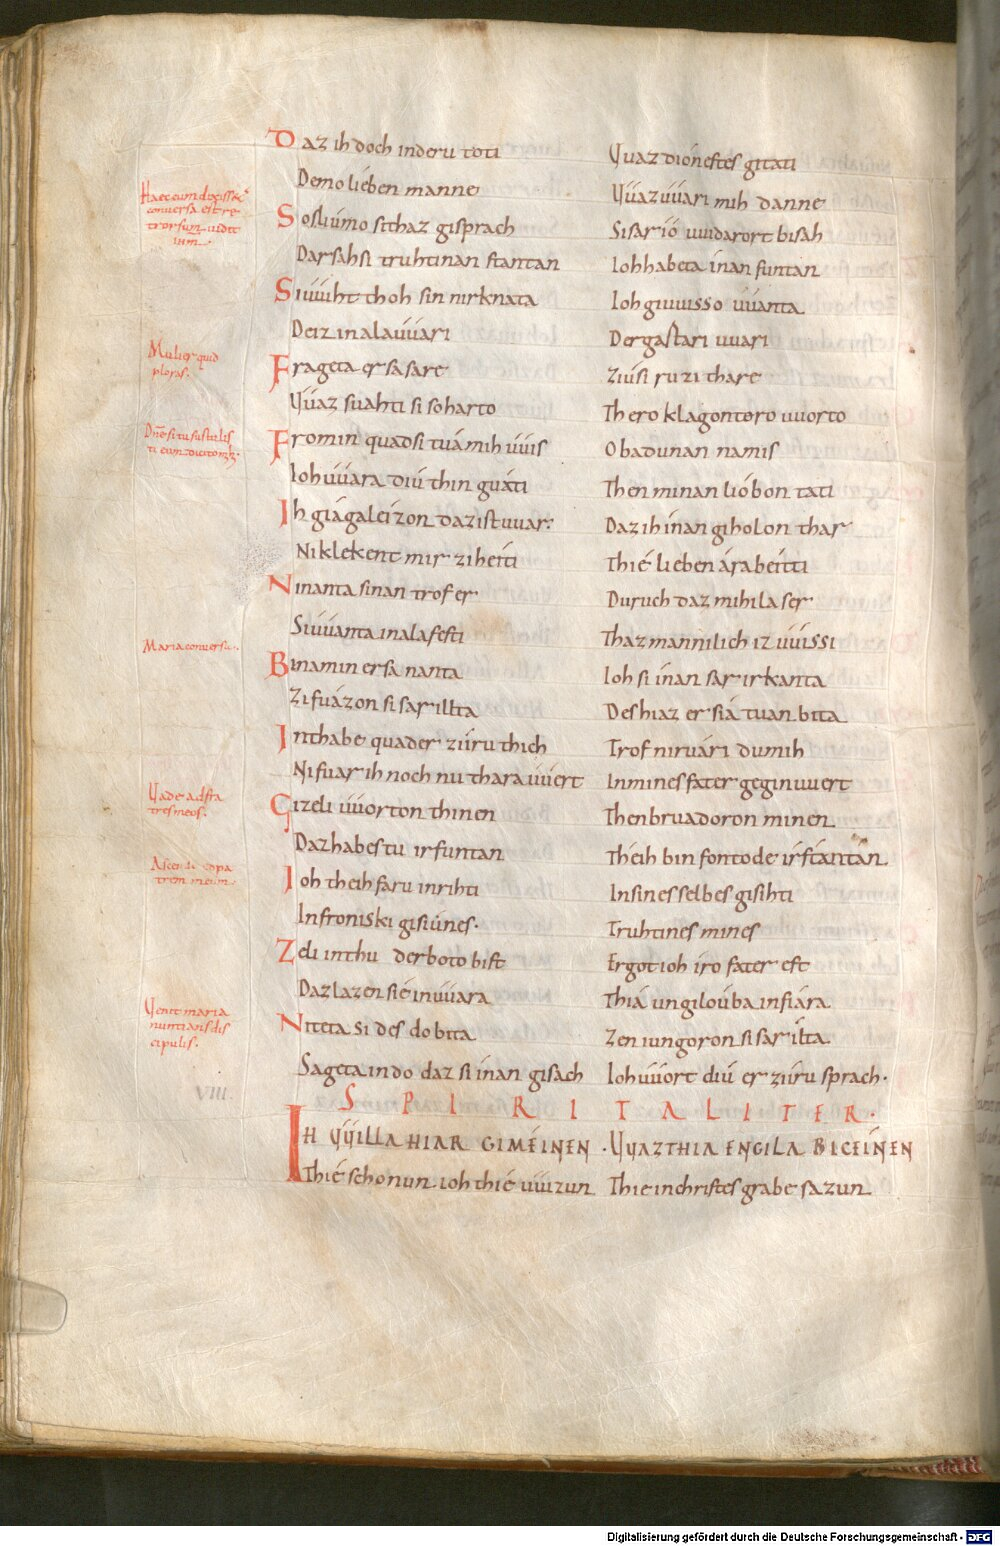 Daz ih doch inderu toti Vuaz dionestes gitati
Demo lieben manne Vuaz uuari mih danne
Haec cum dixisset
conuersa est re
trorsum uidit
ihm.
So sliumo sithaz gisprach Si sar io uuidarort bisah
Dar sahsi truhtinan stantan Ioh habeta inan funtan
Siuuiht thoh sin nirknata Ioh giuuisso uuanta
Deiz in alauuari Der gastari uuari
Mulier quid
ploras.
Frageta er sa sare Ziu si ruzi thare
Vuaz suahti si so harto Thero klagontero uuorto
Dne si tu sustulis
ti eum dicito mihi
Fro min quad si tuá mih uuis Oba du nan namis
Ioh uuara diu thin guati Then minan liobon tati
Ih giágaleizon daz ist uuar: Daz ih inan giholon thar
Ni klekent mir ziheiti Thié lieben árabeiti
Ni nanta sinan trof er Duruch daz mihila ser
Si uuanta in alafesti Thaz mannilich iz uuissi
Maria conuersa.
Bi namin er sa nanta Ioh si inan sar irkanta
Zi fuázon si sar ilta Des hiaz er siá tuan bita
Inthabe quad er ziiru thich Trof ni ruári du mih
Ni fuar ih noch nu thara uuert In mines fater geginuuert
Vade ad fra
tres meos.
Gizeli uuorton thinen Then bruadoron minen
Daz habes tu irfuntan Theih bin fon tode irstantan
Ascendo ad pa
trem meum.
Ioh theih faru in rihti In sines selbes gisihti
In froniski gisiunes. Truhtines mines
Zeli in thu der boto bist Er got ioh iro fater est
Daz lazen sié in uuara Thiá ungilouba in fiara
Venit maria
nuntians dis
cipulis.
Ni teta si des do bita Zen iungoron si sar ilta
Sageta in do daz si inan gisach Ioh uuort diu er ziiru sprach.
VIII.
SPIRITALITER.
IH VVILLA HIAR GIMEINEN. VVAZ THIA ENGILA BICEINEN
Thié schonun ioh thié uuizun Thie in christes grabe sazun
Digitalisierung gefördert durch die Deutsche Forschungsgemeinschaft - DFG